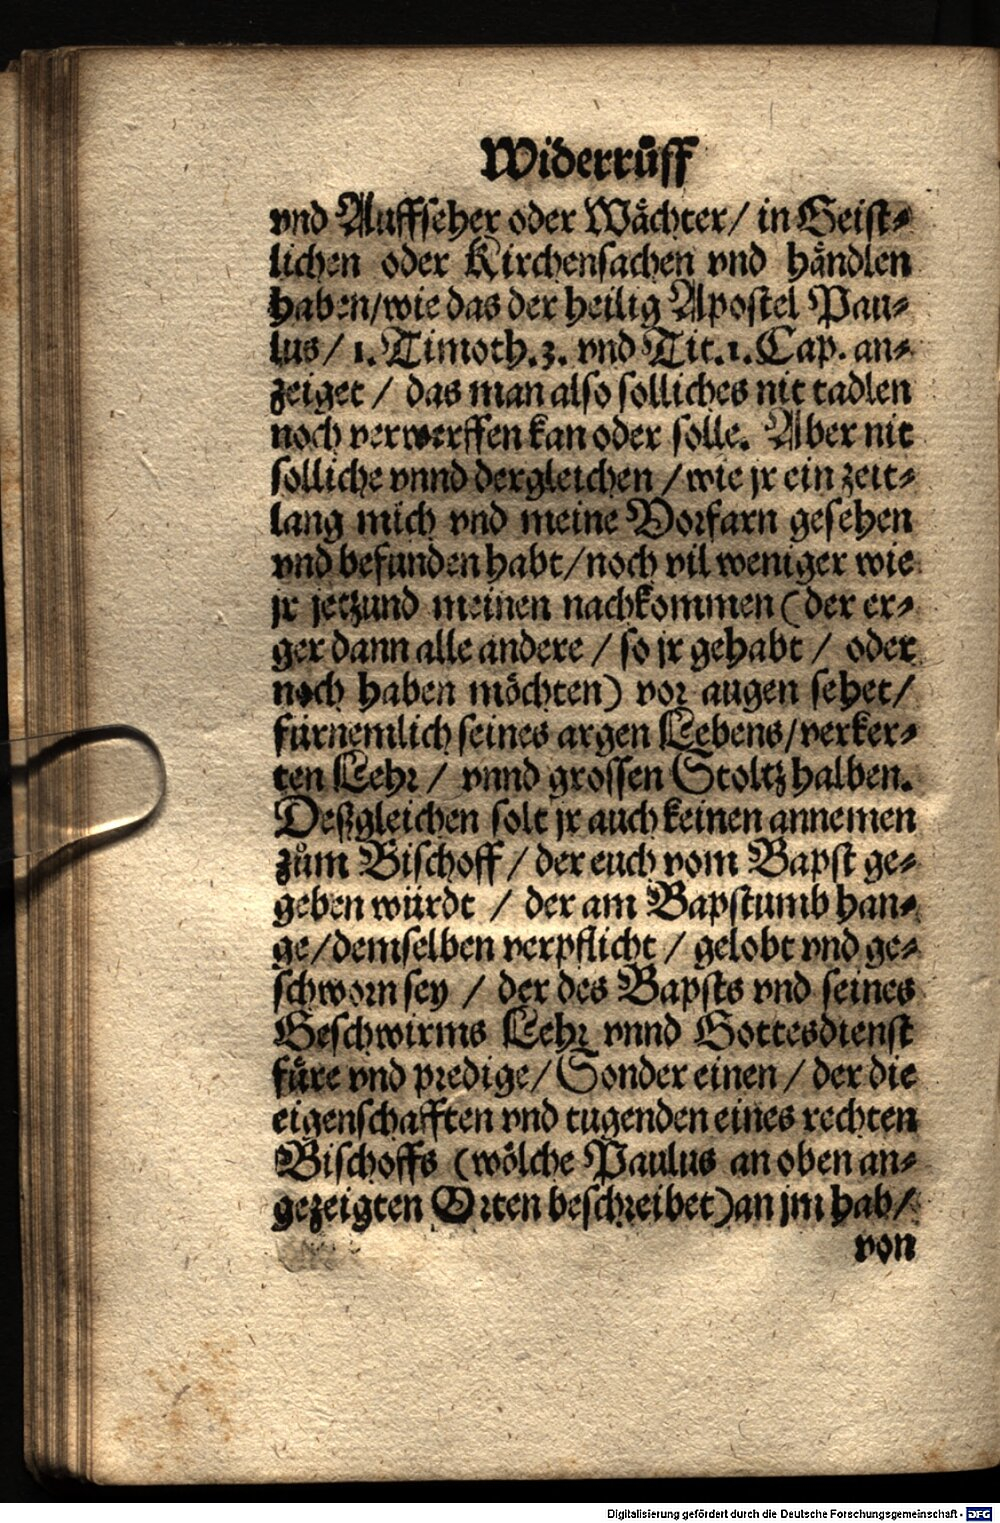 Widerrůff
vnd Auffseher oder Wåchter/ in Geist-
lichen oder Kirchensachen vnd håndlen
haben/wie das der heilig Apostel Pau-
lus/ 1. Timoth. 3. vnd Tit. 1. Cap. an-
zeiget / das man also solliches nit tadlen
noch verwerffen kan oder solle. Aber nit
solliche vnnd dergleichen / wie jr ein zeit-
lang mich vnd meine Vorfarn gesehen
vnd befunden habt/noch vil weniger wie
jr jetzund meinen nachkommen (der er-
ger dann alle andere / so jr gehabt / oder
noch haben möchten) vor augen sehet/
fürnemlich seines argen Lebens/verker-
ten Lehr / vnnd grossen Stoltz halben.
Deßgleichen solt jr auch keinen annemen
zům Bischoff / der euch vom Bapst ge-
geben würdt / der am Bapstumb han-
ge/demselben verpflicht / gelobt vnd ge-
schworn sey / der des Bapsts vnd seines
Geschwirms Lehr vnnd Gottesdienst
füre vnd predige/ Sonder einen / der die
eigenschafften vnd tugenden eines rechten
Bischoffs (wölche Paulus an oben an-
gezeigten Orten beschreibet) an jm hab/
von
Digitalisierung gefördert durch die Deutsche Forschungsgemeinschaft - DFG